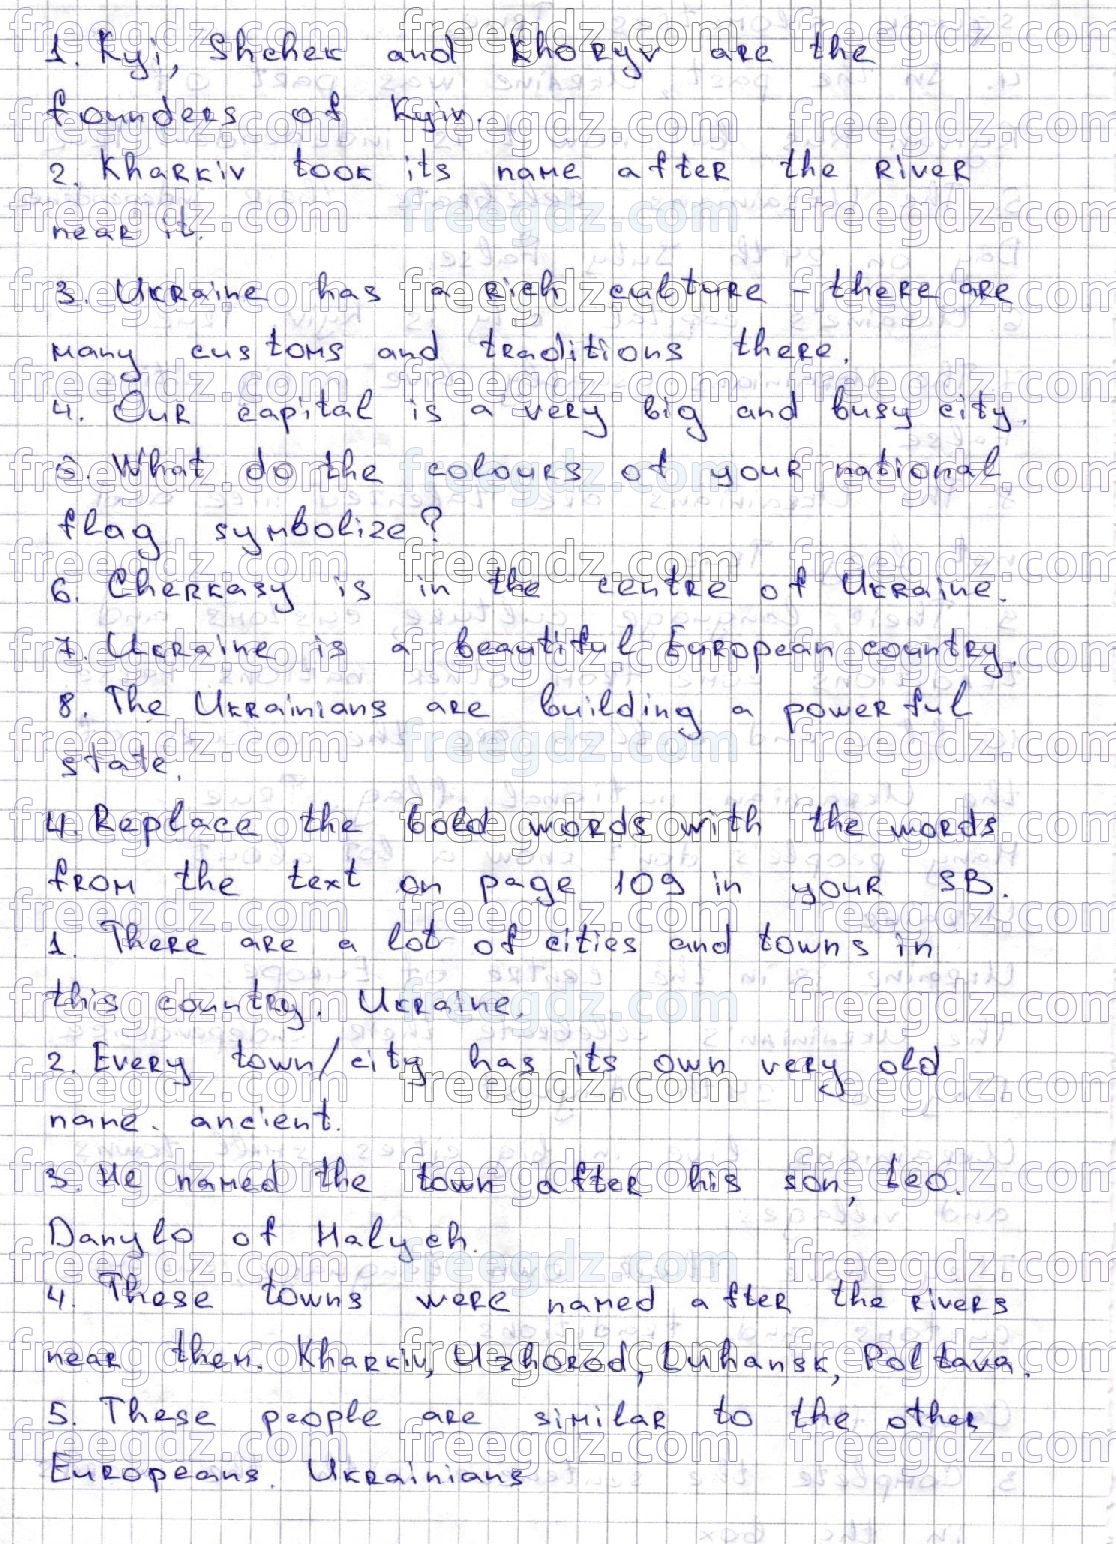 1. Kyi, Shchek and Khoryv are the
founders of Kyiv.
2. Kharkiv took its name after the river
near it.
3. Ukraine has a rich culture – there are
many customs and traditions there.
4. Our capital is a very big and busy city.
5. What do the colours of your national
flag symbolize?
6. Cherkasy is in the centre of Ukraine.
7. Ukraine is a beautiful European country.
8. The Ukrainians are building a powerful
state.
4. Replace the bold words with the words
from the text on page 109 in your SB.
1. There are a lot of cities and towns in
this country. Ukraine.
2. Every town/city has its own very old
name. ancient.
3. He named the town after his son, Leo.
Danylo of Halych.
4. These towns were named after the rivers
near then. Kharkiv, Uzhorod, Luhansk, Poltava.
5. These people are similar to the other
Europeans. Ukrainians
freegdz.com